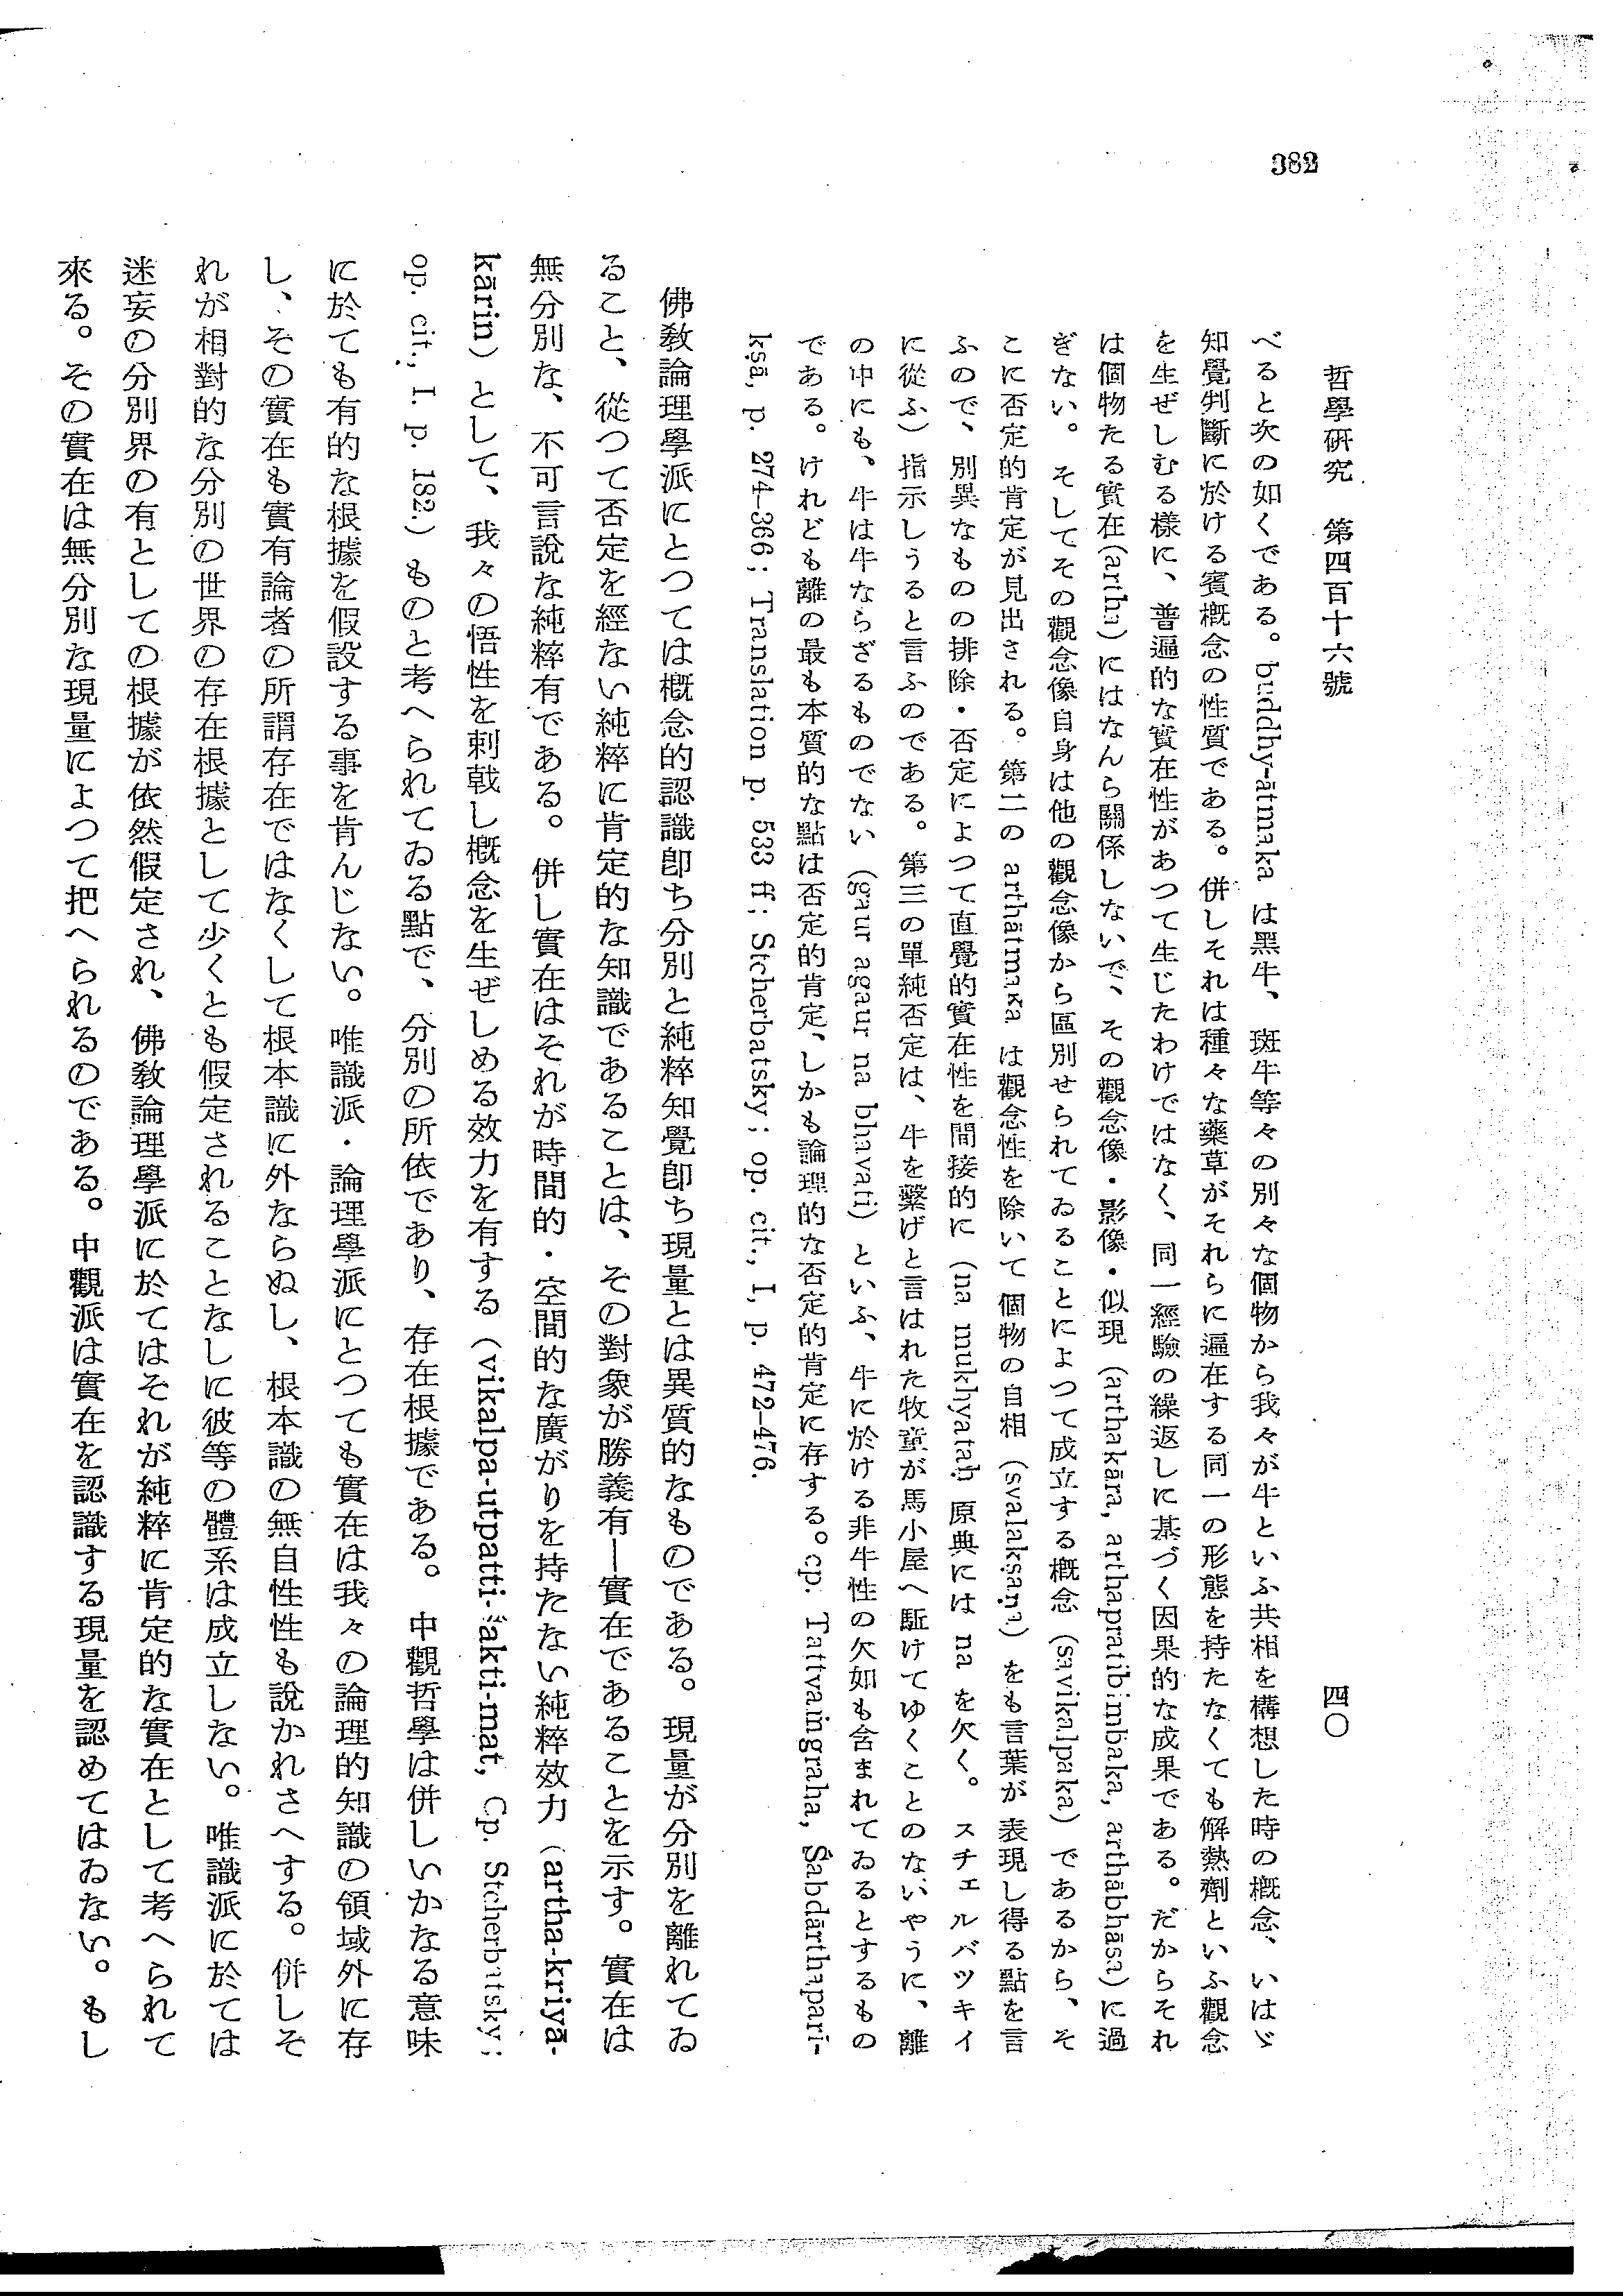 382
哲學研究　第四百十六號　四〇
べると次の如くである。buddhy-ātmaka は黑牛、斑牛等々の別々な個物から我々が牛といふ共相を構想した時の概念、いはゞ
知覺判斷に於ける賓概念の性質である。併しそれは種々な藥草がそれらに遍在する同一の形態を持たなくても解熱劑といふ觀念
を生ぜしむる樣に、普遍的な實在性があつて生じたわけではなく、同一經驗の繰返しに基づく因果的な成果である。だからそれ
は個物たる實在(artha)にはなんら關係しないで、その觀念像・影像・似現 (arthakāra, arthapratibimbaka, arthābhāsa)に過
ぎない。そしてその觀念像自身は他の觀念像から區別せられてゐることによつて成立する概念 (savikalpaka) であるから、そ
こに否定的肯定が見出される。第二の arthātmaka は觀念性を除いて個物の自相 (svalakṣaṇa) をも言葉が表現し得る點を言
ふので、別異なものの排除・否定によつて直覺的實在性を間接的に (na mukhyataḥ 原典には na を欠く。スチェルバツキイ
に從ふ) 指示しうると言ふのである。第三の單純否定は、牛を繫げと言はれた牧童が馬小屋へ駈けてゆくことのないやうに、離
の中にも、牛は牛ならざるものでない (gaur agaur na bhavati) といふ、牛に於ける非牛性の欠如も含まれてゐるとするもの
である。けれども離の最も本質的な點は否定的肯定、しかも論理的な否定的肯定に存する。cp. Tattvaṁgraha, Śabdārthapari-
kṣā, p. 274–366; Translation p. 533 ff; Stcherbatsky; op. cit., I, p. 472–476.
佛敎論理學派にとつては概念的認識卽ち分別と純粹知覺卽ち現量とは異質的なものである。現量が分別を離れてゐ
ること、從つて否定を經ない純粹に肯定的な知識であることは、その對象が勝義有—實在であることを示す。實在は
無分別な、不可言說な純粹有である。併し實在はそれが時間的・空間的な廣がりを持たない純粹效力 (artha-kriyā-
kārin) として、我々の悟性を刺戟し概念を生ぜしめる效力を有する (vikalpa-utpatti-śakti-mat, Cp. Stcherbatsky;
op. cit., I. p. 182.) ものと考へられてゐる點で、分別の所依であり、存在根據である。中觀哲學は併しいかなる意味
に於ても有的な根據を假設する事を肯んじない。唯識派・論理學派にとつても實在は我々の論理的知識の領域外に存
し、その實在も實有論者の所謂存在ではなくして根本識に外ならぬし、根本識の無自性性も說かれさへする。併しそ
れが相對的な分別の世界の存在根據として少くとも假定されることなしに彼等の體系は成立しない。唯識派に於ては
迷妄の分別界の有としての根據が依然假定され、佛敎論理學派に於てはそれが純粹に肯定的な實在として考へられて
來る。その實在は無分別な現量によつて把へられるのである。中觀派は實在を認識する現量を認めてはゐない。もし